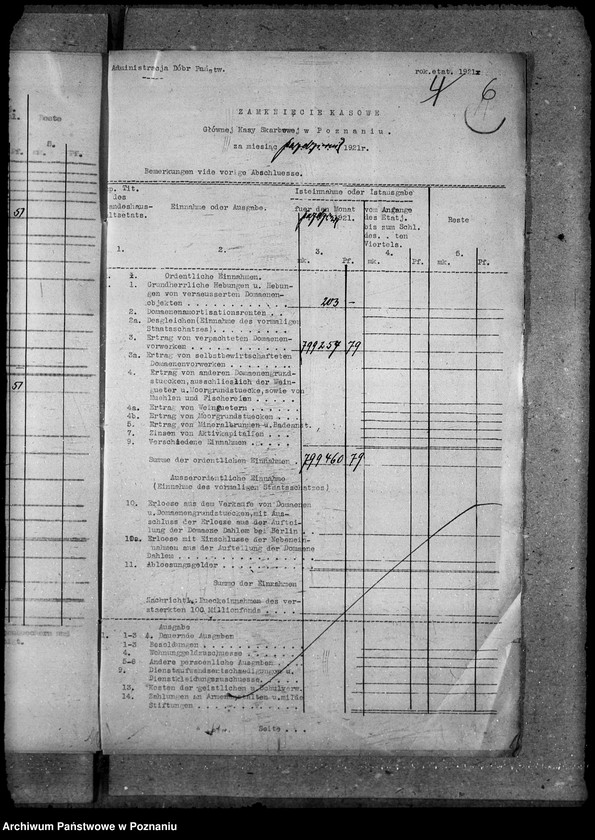 Administracja Dóbr Państw.
rok.etat. 1921
4 6
ZAMKNIĘCIE KASOWE
Głównej Kasy Skarbowej w Poznaniu.
za miesiąc październik 1921r.
Bemerkungen vide vorige Abschluesse.
Tit.
des
Einnahme oder Ausgabe.
Isteinnahme oder Istausgabe
fuer den Monat
1921.
von Anfange
des Etatj.
bis zum Schl.
des...ten
Viertels.
Reste
1. 2. 3. 4. 5.
mk. Pf. mk. Pf. mk. Pf.
Ordentliche Einnahmen.
1. Grundherrliche Hebungen u. Hebun-
gen von veraeusserten Domaenen-
objekten . . . 203 -
2. Domaenenamortisationsrenten . .
2a. Desgleichen(Einnahme des vormaligen
Staatsschatzes). . . .
3. Ertrag von verpachteten Domaenen-
vorwerken . . . 799257 79
3a. Ertrag von selbstbewirtschafteten
Domaenenvorwerken . . . .
4. Ertrag von anderen Domaenengrund-
stuecken, ausschliesslich der Wein-
gueter u. Moorgrundstuecke, sowie von
Muehlen und Fischereien . . . .
4a. Ertrag von Weinguetern . . . .
4b. Ertrag von Moorgrundstuecken . .
5. Ertrag von Mineralbrunnen-u. Badeanst.
7. Zinsen von Aktivkapitalien . . .
9. Verschiedene Einnahmen . . . .
Summe der ordentlichen Einnahmen . 799460 79
Ausserordentliche Einnahme
(Einnahme des vormaligen Staatsschatzes)
10. Erloese aus dem Verkaufe von Domaenen
u. Domaenengrundstuecken, mit Aus-
schluss der Erloese aus der Auftei-
lung der Domaene Dahlem bei Berlin . .
10a. Erloese mit Einschlusse der Nebenein-
nahmen aus der Aufteilung der Domaene
Dahlem . . . .
11. Abloesungsgelder . . . .
Summe der Einnahmen
Nachrichtl. Rueckeinnahmen des ver-
staerkten 100 Millionfonds . . . .
Ausgabe
1. 1-3 A. Dauernde Ausgaben
1-3 Besoldungen . . . .
4. Wohnungsgeldzuschuesse . . . .
5-8 Andere persoenliche Ausgaben . . .
9. Dienstaufwandsentschaedigungen u.
Dienstkleidungszuschuesse. . . .
13. Kosten der geistlichen u. Schulverw.
14. Zahlungen an Armenanstalten u. milde
Stiftungen . . . .
Seite . . .
Reste
5.
Pf.
51
51
Archiwum Państwowe w Poznaniu